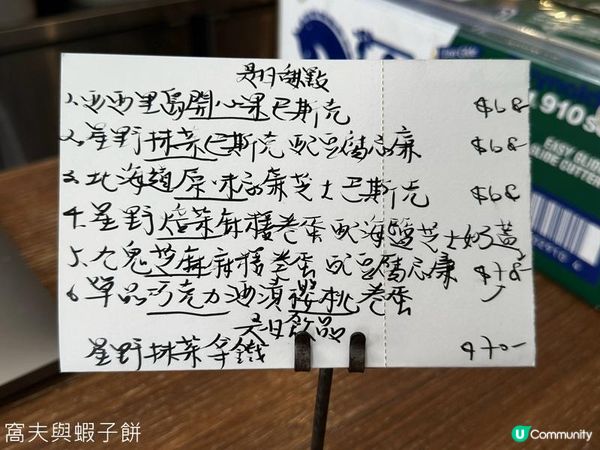 是日甜點
1. 西西里島開心果巴斯克 $68-
2. 星野抹茶巴斯克配豆腐忌廉 $68-
3. 北海道原味忌廉芝士巴斯克 $68
4. 星野焙茶麻糬卷蛋配海鹽芝士奶蓋
5. 九鬼芝麻麻糬卷蛋配豆腐忌廉 $78-
6. 單品巧克力油漬櫻桃卷蛋
是日飲品
星野抹茶拿鐵 $70-
910
EASY GLIDE
SLIDE CUTTER
窩夫與蝦子餅
U Community